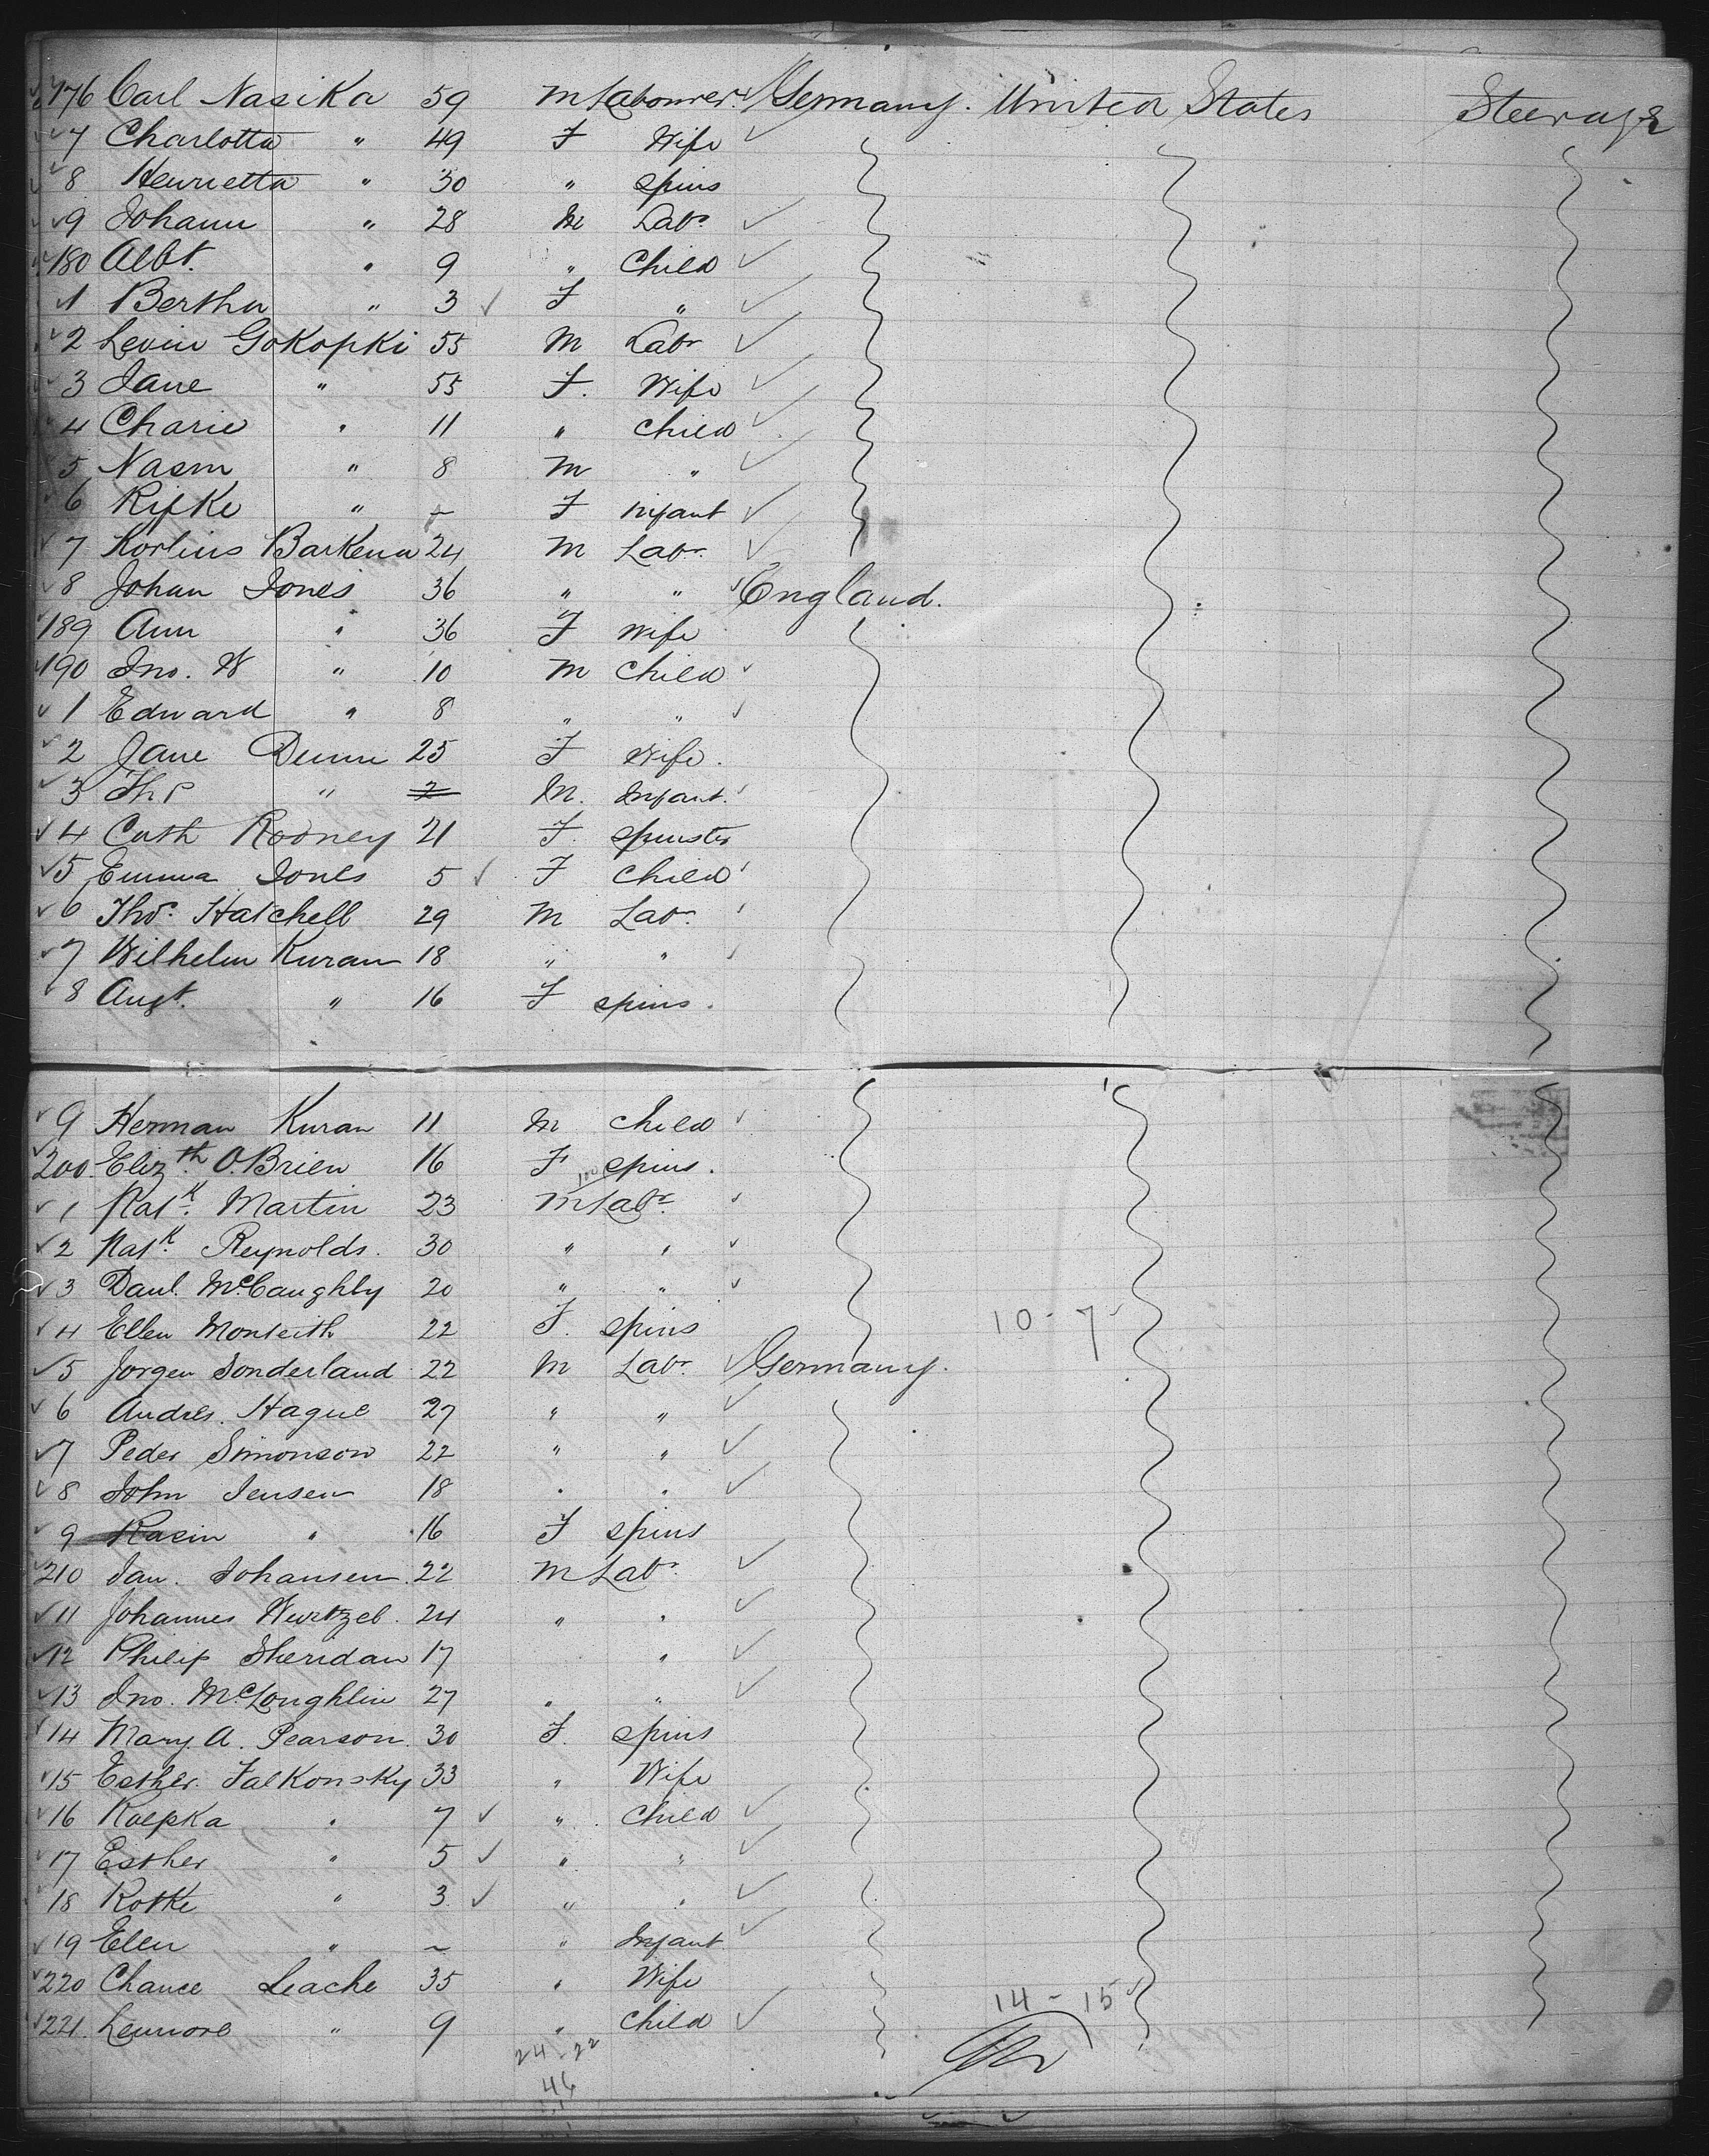 176 Carl Nasika 59 M Labourer Germany. United States Steerage
7 Charlotta " 49 F Wife
8 Henrietta " 30 " Spins
9 Johann " 28 M Labr
180 Albt. " 9 " Child
1 Bertha " 3 F "
2 Levin Gokopki 55 M Labr
3 Jane " 55 F. Wife
4 Charie " 11 " Child
5 Nasm " 8 M "
6 Rifke " - F Infant
7 Korlius Barkena 24 M Labr.
8 Johan Jones 36 " " England.
189 Ann " 36 F Wife
190 Jno. W " 10 M Child
1 Edward " 8 " "
2 Jane Dunn 25 F Wife.
3 Ths " 2 M. Infant.
4 Cath Rooney 21 F. Spinster
5 Emma Jones 5 F Child
6 Thos. Hatchell 29 M Labr.
7 Wilhelm Kuran 18 " "
8 Augt. " 16 F Spins.
9 Herman Kuran 11 M Child
200. Elizth. O.Brien 16 F Spins.
1 Patk. Martin 23 M Labr.
2 Patk. Reynolds. 30 " "
3 Danl. McCaughly 20 " "
4 Ellen Monteith 22 F. Spins
10-7
5 Jorgen Sonderland 22 M Labr. Germany.
6 Andres. Hague 27 " "
7 Peder Simonson 22 " "
8 John Jensen 18 " "
9 Rasin " 16 F Spins
210 Jan. Johansen. 22 M Labr.
11 Johannes Wurtzel. 24 " "
12 Philip Sheridan 17 "
13 Jno. McLoughlin 27 " "
14 Mary. A. Pearson. 30 F. Spins
15 Esther. Falkonsky 33 " Wife
16 Roepka " 7 " Child
17 Esther " 5 " "
18 Rotke " 3 " "
19 Ellen " - " Infant.
220 Chance Leache 35 " Wife
14-15
221. Lennore " 9 " Child
24-22
46